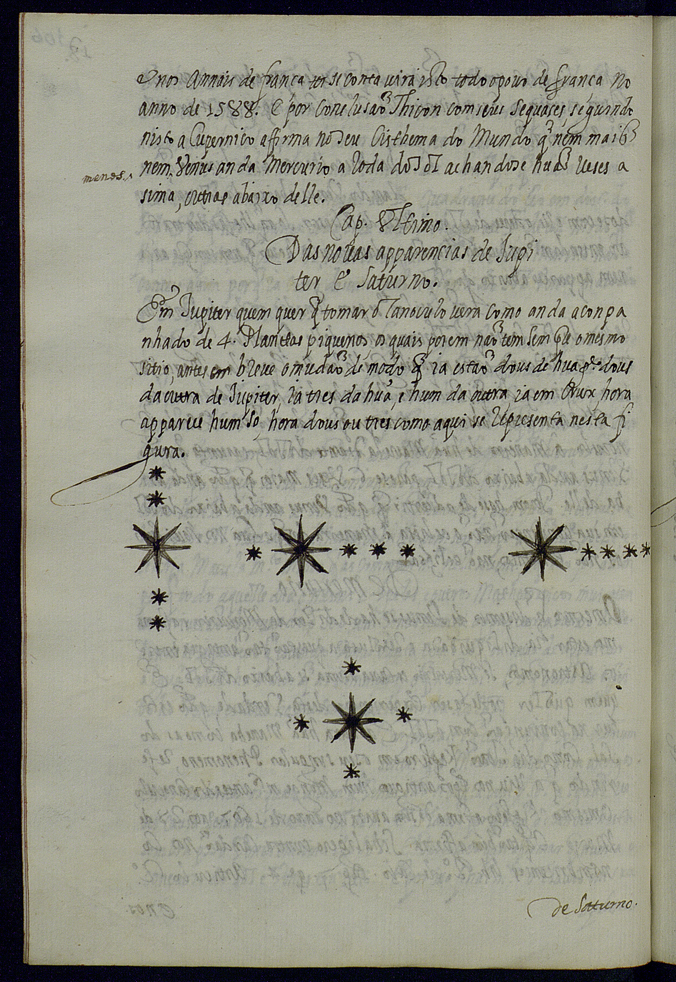 E nos Annais de frança ter se conta vira isto todo o povo de frança no
anno de 1588. E por conclusaõ Thicon com seus sequases, seguindo
nisto a Cupernico affirma no seu Cisthema do Mundo q̃ nem mais
menos
nem Venus anda Mercurio a Roda do Sol achandose huãs veses a
sima, outras abaixo delle.
Cap. Ultimo.
Das novas apparencias de Jupi
ter E Saturno.
Em Jupiter quem quer q̃ tomar o Tanoculo vera como anda acompa
nhado de 4. Planetas piquenos, os quais porem naõ tem sempre o mesmo
sitio, antes em breve o mudaõ de modo q̃ ia estaõ dous de hua pte. dous
da outra de Jupiter, ia tres da huã, e hum da outra ia em hora
appareçe hum so, hora dous ou tres como aqui se representa nesta fi
gura.
de Saturno.